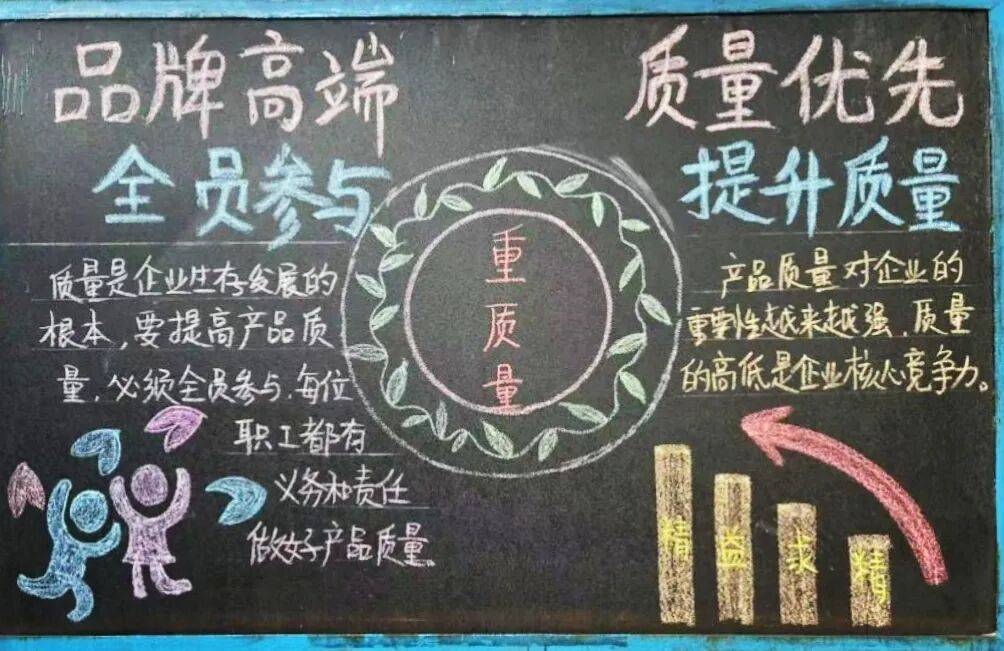 品牌高端
全员参与
质量是企业生存发展的
根本,要提高产品质
量,必须全员参与,每位
职工都有
义务和责任
做好产品质量
重
质
量
质量优先
提升质量
产品质量对企业的
重要性越来越强,质量
的高低是企业核心竞争力。
精 益 求 精